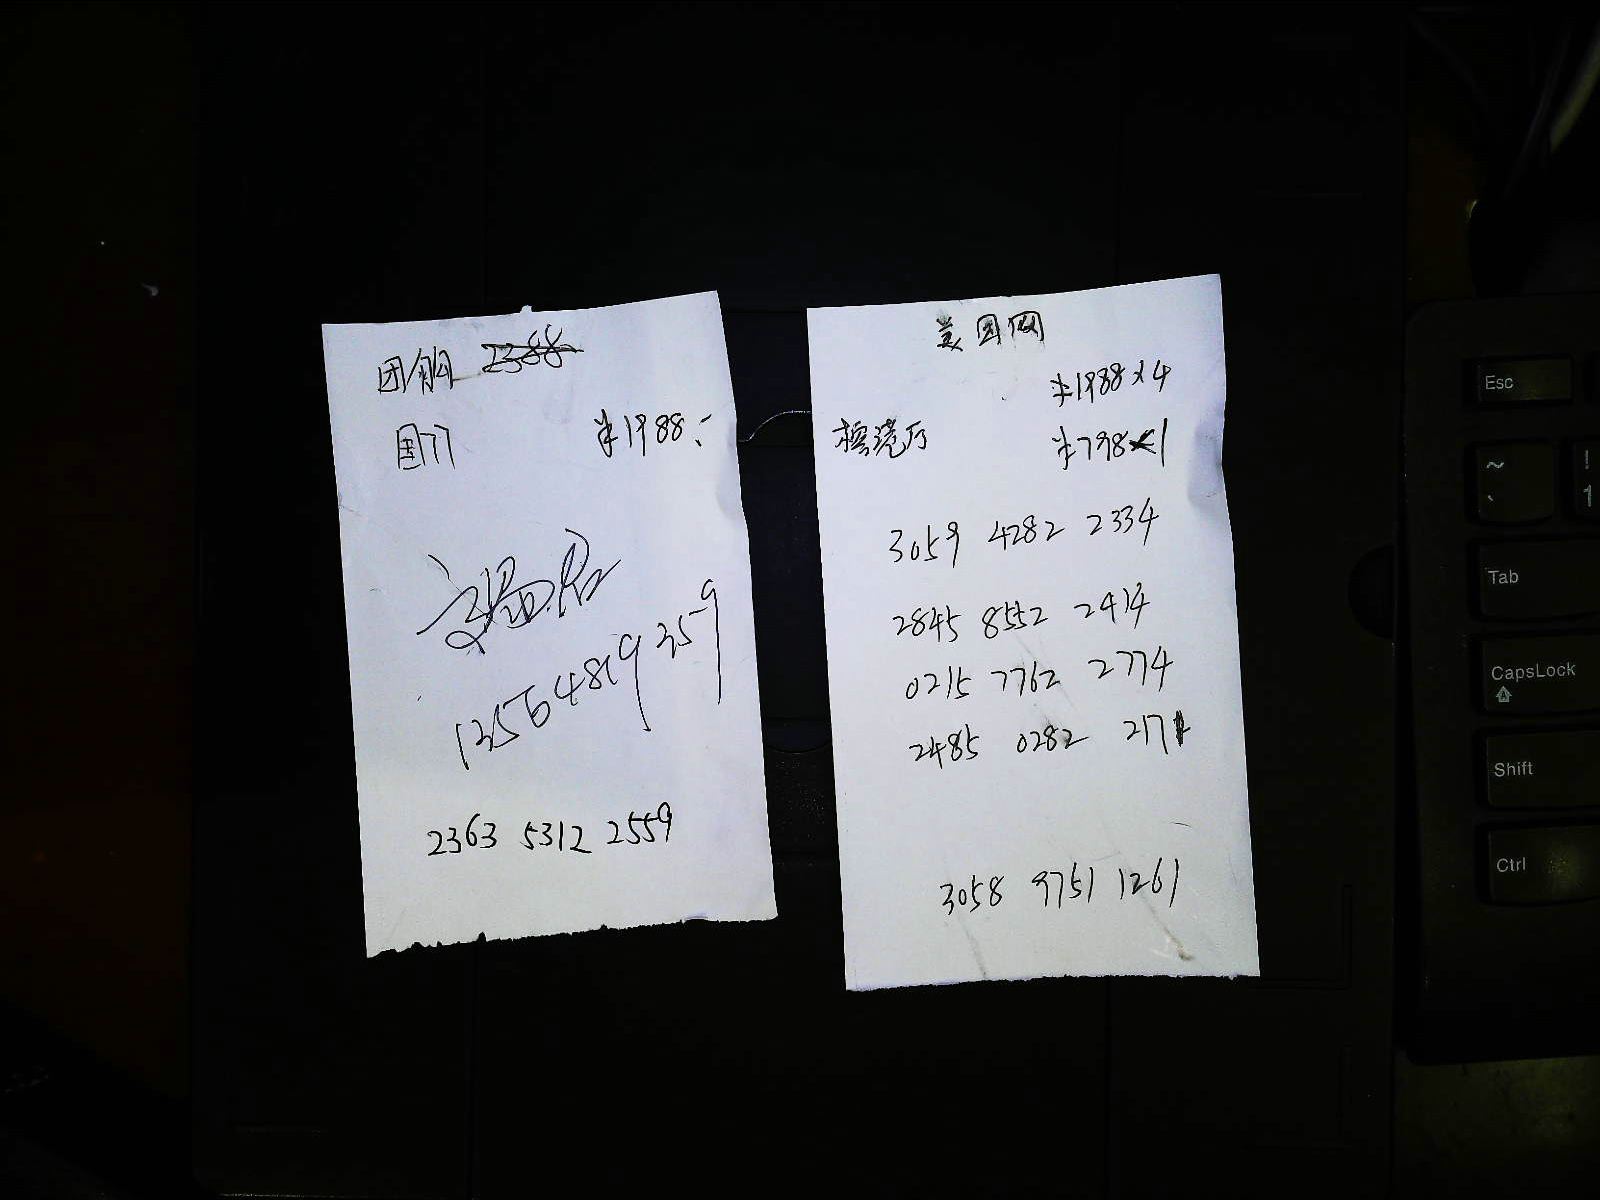 团购 2388
国门 ¥1988.-
13564819359
2363 5312 2559
美团网
¥1988×4
¥798×1
3059 4282 2334
2845 8552 2414
0215 7762 2774
2485 0282 2171
3058 9751 1261
Esc
~
`
!
1
Tab
CapsLock
Shift
Ctrl